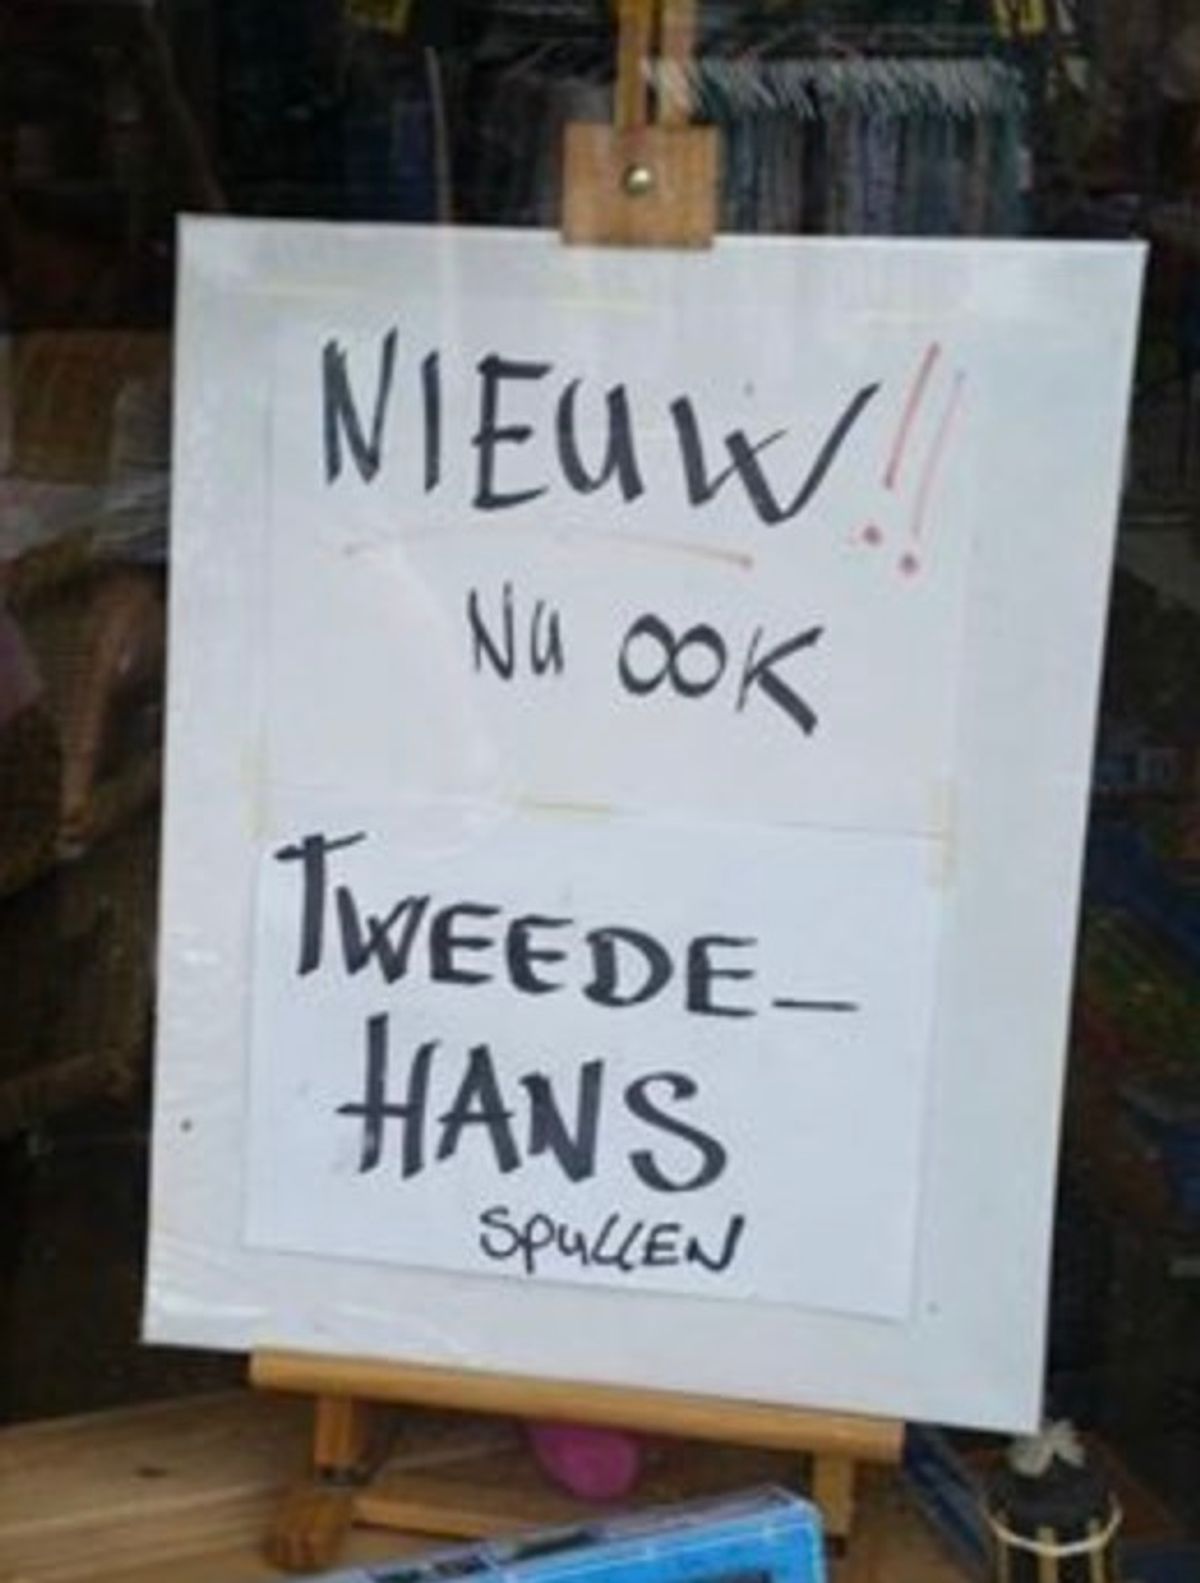 NIEUW!!
NU OOK
TWEEDE-
HANS
SPULLEN